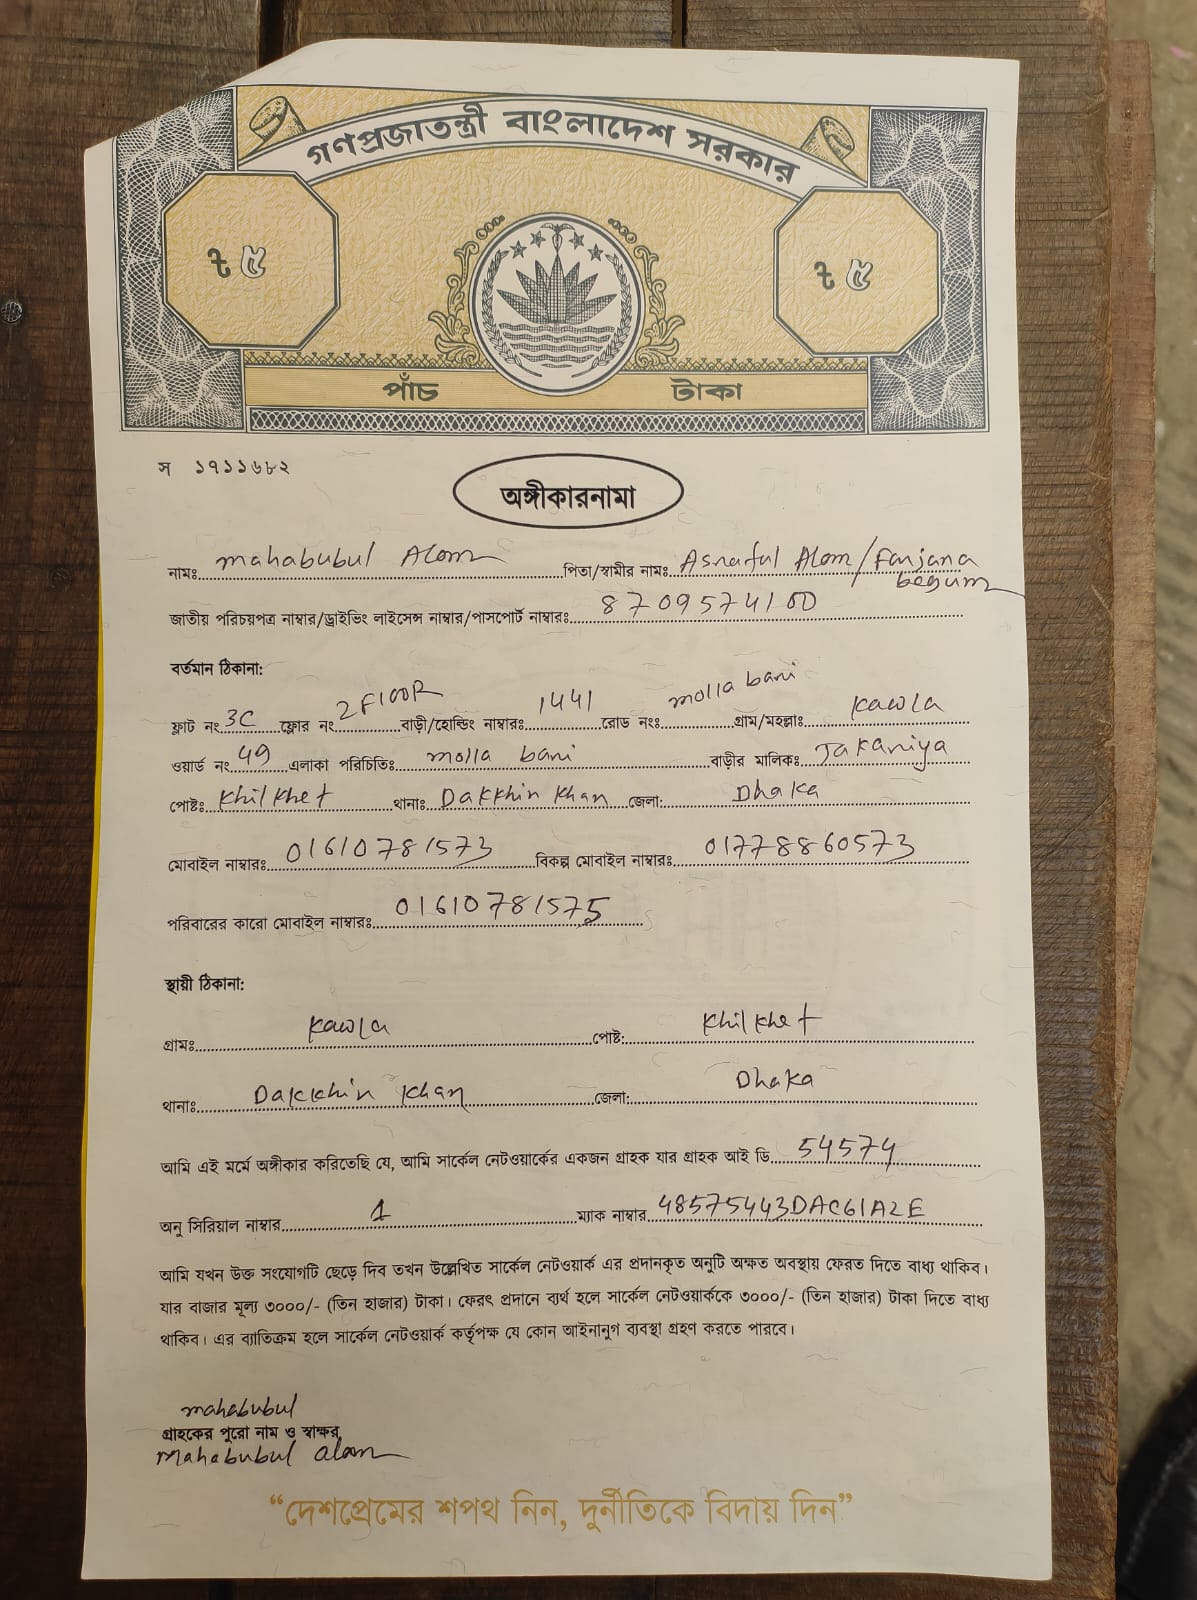 গণপ্রজাতন্ত্রী বাংলাদেশ সরকার
৳ ৫ ৳ ৫
পাঁচ টাকা
স ১৭১১৬৮২
অঙ্গীকারনামা
নামঃ mahabubul Alom পিতা/স্বামীর নামঃ Asraful Alom/Farjana begum
জাতীয় পরিচয়পত্র নাম্বার/ড্রাইভিং লাইসেন্স নাম্বার/পাসপোর্ট নাম্বারঃ 8709574100
বর্তমান ঠিকানা:
ফ্লাট নং 3C ফ্লোর নং 2 FlooR বাড়ী/হোল্ডিং নাম্বারঃ 1441 রোড নংঃ molla bari গ্রাম/মহল্লাঃ kawla
ওয়ার্ড নং 49 এলাকা পরিচিতিঃ molla bari বাড়ীর মালিকঃ Jakariya
পোষ্টঃ khilkhet থানাঃ Dakkhin khan জেলা: Dhaka
মোবাইল নাম্বারঃ 01610781573 বিকল্প মোবাইল নাম্বারঃ 01778860573
পরিবারের কারো মোবাইল নাম্বারঃ 01610781575
স্থায়ী ঠিকানা:
গ্রামঃ kawla পোষ্ট: khilkhet
থানাঃ Dakkhin khan জেলা: Dhaka
আমি এই মর্মে অঙ্গীকার করিতেছি যে, আমি সার্কেল নেটওয়ার্কের একজন গ্রাহক যার গ্রাহক আই ডি 54574
অনু সিরিয়াল নাম্বার 1 ম্যাক নাম্বার 48575443DAC61A2E
আমি যখন উক্ত সংযোগটি ছেড়ে দিব তখন উল্লেখিত সার্কেল নেটওয়ার্ক এর প্রদানকৃত অনুটি অক্ষত অবস্থায় ফেরত দিতে বাধ্য থাকিব।
যার বাজার মূল্য ৩০০০/- (তিন হাজার) টাকা। ফেরৎ প্রদানে ব্যর্থ হলে সার্কেল নেটওয়ার্ককে ৩০০০/- (তিন হাজার) টাকা দিতে বাধ্য
থাকিব। এর ব্যাতিক্রম হলে সার্কেল নেটওয়ার্ক কর্তৃপক্ষ যে কোন আইনানুগ ব্যবস্থা গ্রহণ করতে পারবে।
mahabubul
গ্রাহকের পুরো নাম ও স্বাক্ষর
mahabubul alom
“দেশপ্রেমের শপথ নিন, দুর্নীতিকে বিদায় দিন”